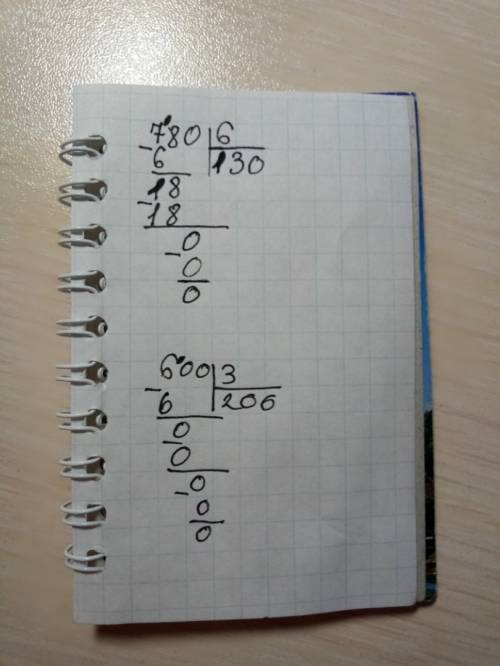 780 6
-6 130
18
-18
0
-0
0
600 3
-6 200
0
-0
0
-0
0